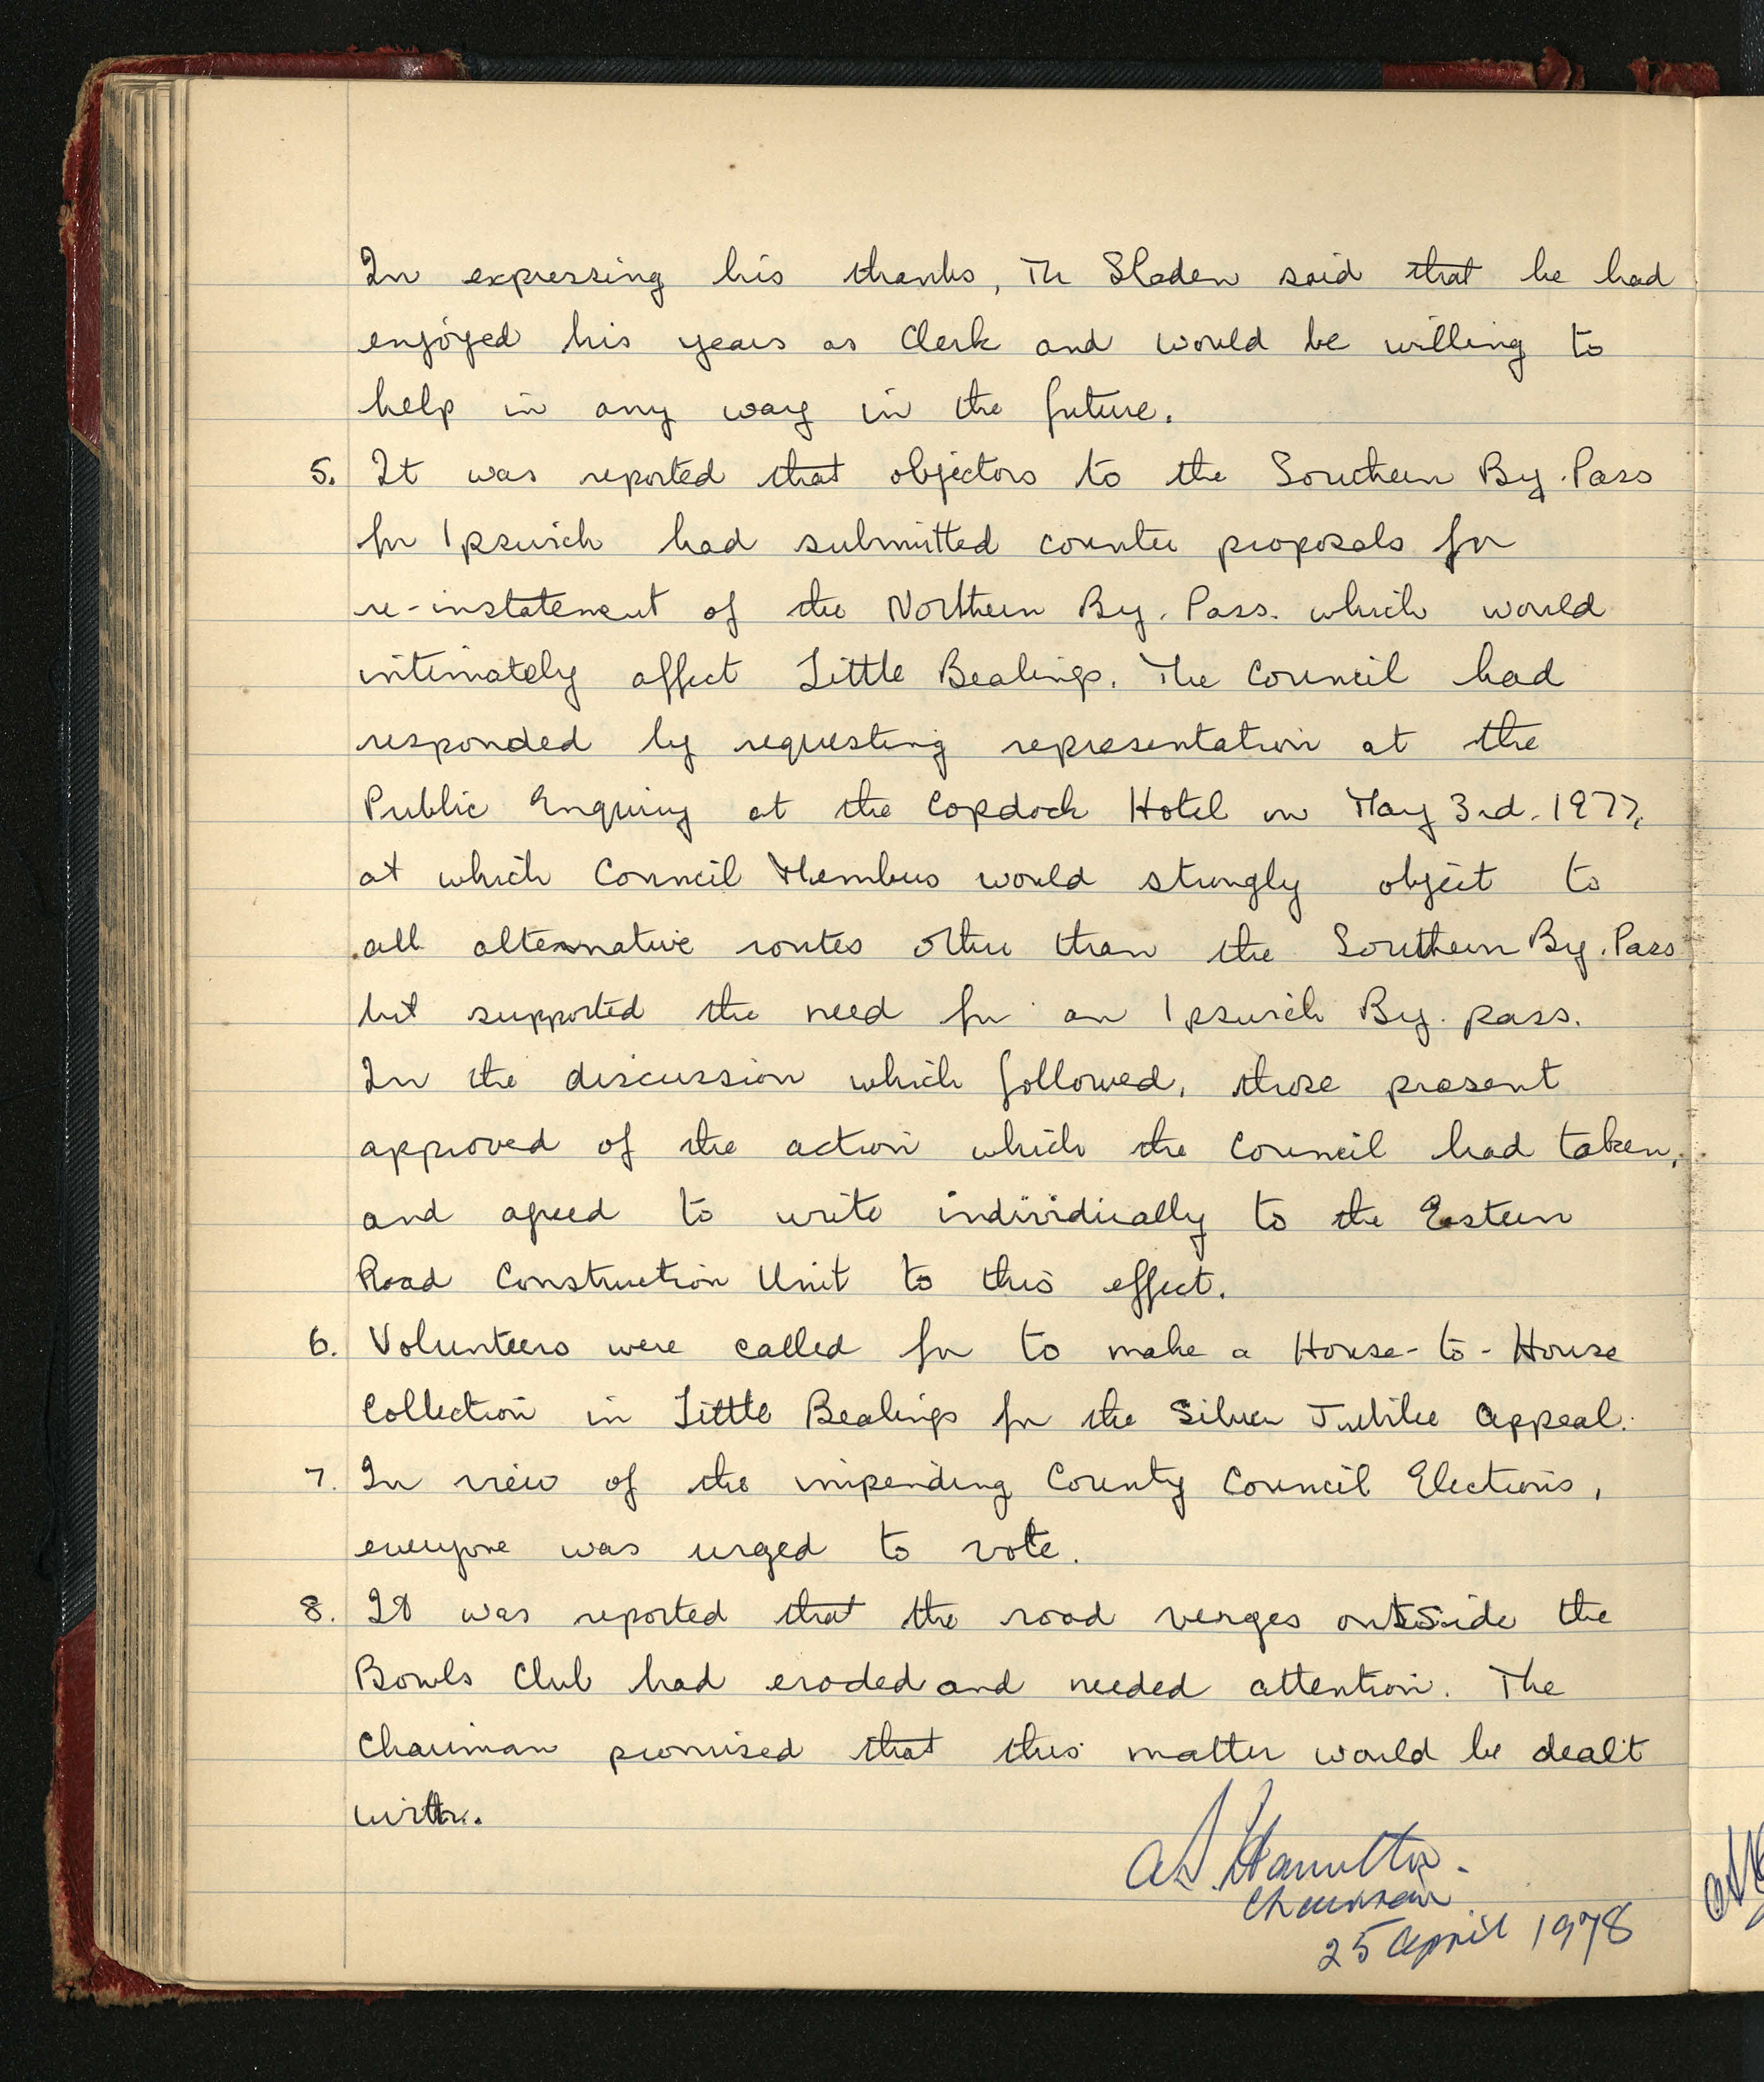 In expressing his thanks, Mr Sladen said that he had
enjoyed his years as Clerk and would be willing to
help in any way in the future.
5. It was reported that objectors to the Southern By.Pass
for Ipswich had submitted counter proposals for
re-instatement of the Northern By.Pass. which would
intimately affect Little Bealings. The Council had
responded by requesting representation at the
Public Enquiry at the Copdock Hotel on May 3rd. 1977,
at which Council Members would strongly object to
all alternative routes other than the Southern By.Pass
but supported the need for an Ipswich By.pass.
In the discussion which followed, those present
approved of the action which the Council had taken,
and agreed to write individually to the Eastern
Road Construction Unit to this effect.
6. Volunteers were called for to make a House-to-House
Collection in Little Bealings for the Silver Jubilee Appeal.
7. In view of the impending County Council Elections,
everyone was urged to vote.
8. It was reported that the road verges outside the
Bowls Club had eroded and needed attention. The
Chairman promised that this matter would be dealt
with.
Hamilton.
Chairman
25 April 1978